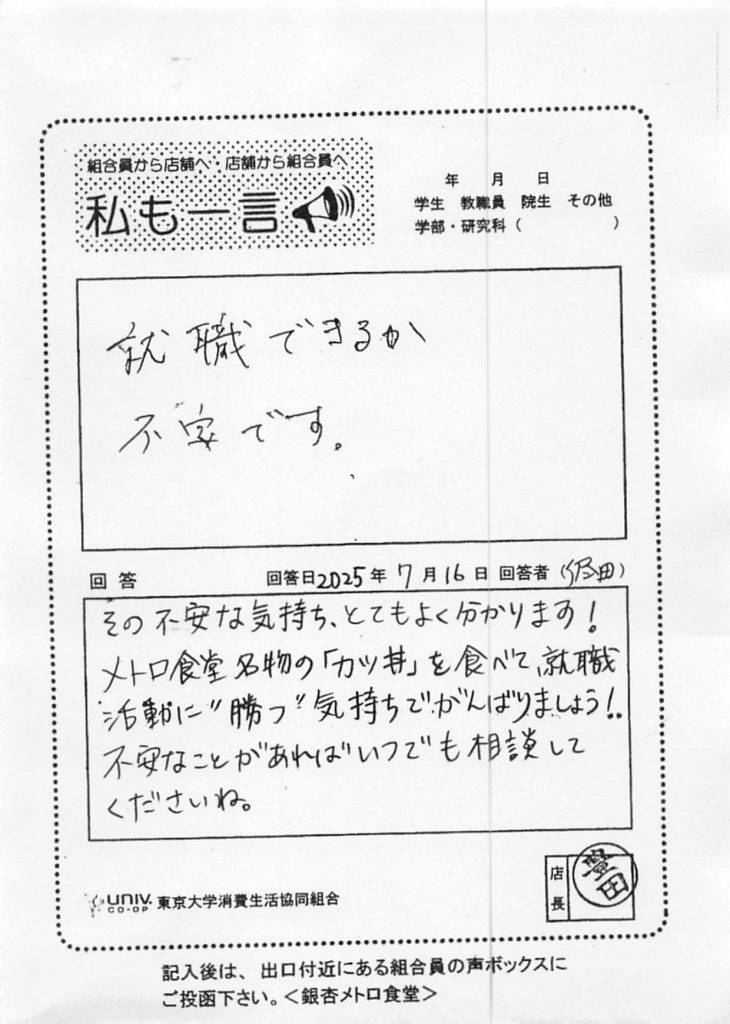 組合員から店舗へ・店舗から組合員へ
私も一言
年 月 日
学生 教職員 院生 その他
学部・研究科( )
就職できるか
不安です。
回答 回答日2025年7月16日 回答者( 田)
その不安な気持ち、とてもよく分かります!
メトロ食堂名物の「カツ丼」を食べて、就職
活動に"勝つ"気持ちでがんばりましょう!!
不安なことがあればいつでも相談して
くださいね。
UNIV. CO-OP 東京大学消費生活協同組合
店長 豊田
記入後は、出口付近にある組合員の声ボックスに
ご投函下さい。<銀杏メトロ食堂>